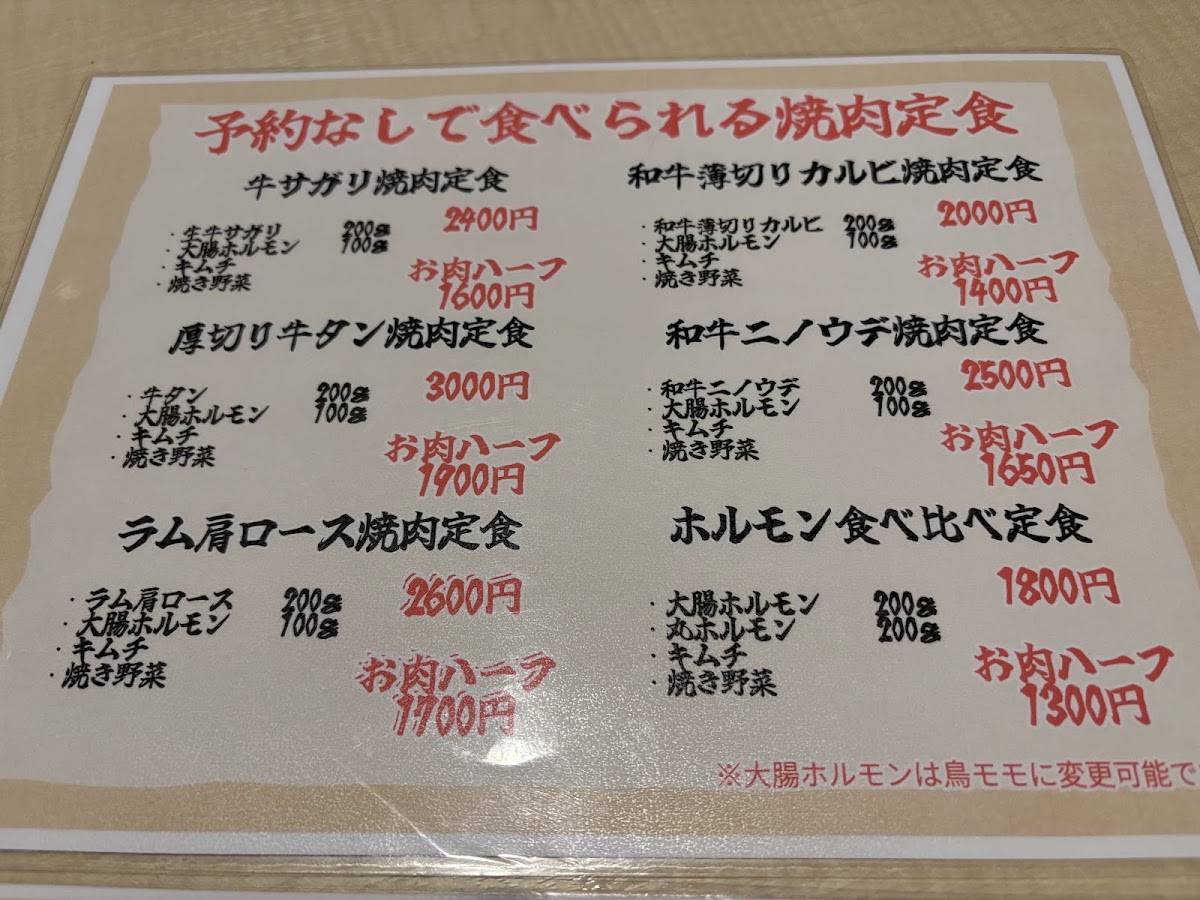 予約なしで食べられる焼肉定食
牛サガリ焼肉定食
2400円
・牛牛サガリ 200g
・大腸ホルモン 100g
・キムチ
・焼き野菜
お肉ハーフ
1600円
和牛薄切りカルビ焼肉定食
2000円
・和牛薄切りカルビ 200g
・大腸ホルモン 100g
・キムチ
・焼き野菜
お肉ハーフ
1400円
厚切り牛タン焼肉定食
3000円
・牛タン 200g
・大腸ホルモン 100g
・キムチ
・焼き野菜
お肉ハーフ
1900円
和牛ニノウデ焼肉定食
2500円
・和牛ニノウデ 200g
・大腸ホルモン 100g
・キムチ
・焼き野菜
お肉ハーフ
1650円
ラム肩ロース焼肉定食
2600円
・ラム肩ロース 200g
・大腸ホルモン 100g
・キムチ
・焼き野菜
お肉ハーフ
1700円
ホルモン食べ比べ定食
1800円
・大腸ホルモン 200g
・丸ホルモン 200g
・キムチ
・焼き野菜
お肉ハーフ
1300円
※大腸ホルモンは鳥モモに変更可能で